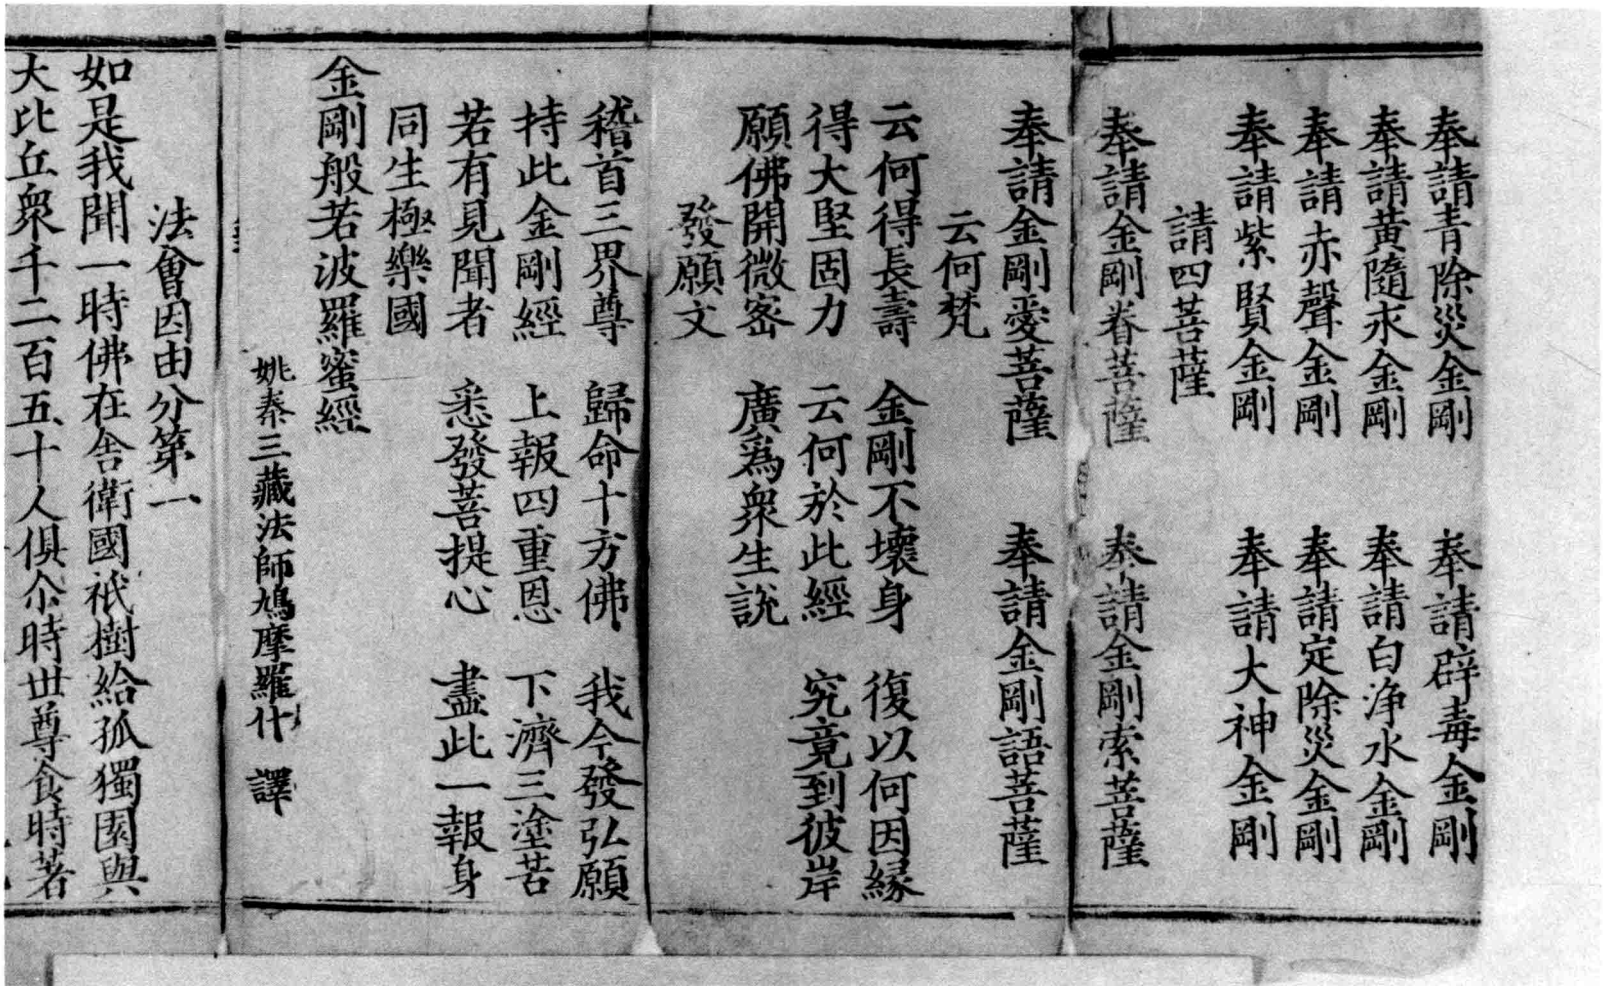 奉請青除災金剛　奉請辟毒金剛
奉請黃隨求金剛　奉請白淨水金剛
奉請赤聲金剛　奉請定除災金剛
奉請紫賢金剛　奉請大神金剛
請四菩薩
奉請金剛眷菩薩　奉請金剛索菩薩
奉請金剛愛菩薩　奉請金剛語菩薩
云何梵
云何得長壽　金剛不壞身　復以何因緣
得大堅固力　云何於此經　究竟到彼岸
願佛開微密　廣為衆生說
發願文
稽首三界尊　歸命十方佛　我今發弘願
持此金剛經　上報四重恩　下濟三塗苦
若有見聞者　悉發菩提心　盡此一報身
同生極樂國
金剛般若波羅蜜經
姚秦三藏法師鳩摩羅什　譯
法會因由分第一
如是我聞一時佛在舍衛國祇樹給孤獨園與
大比丘衆千二百五十人俱尒時世尊食時著